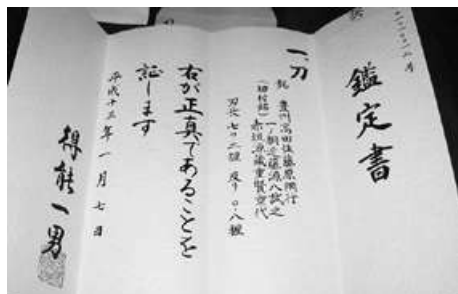 鑑定書
一、刀
銘 豊州高田住藤原
(切付銘)
赤垣源蔵重賢
刃長 七〇・二糎 反り 〇・八糎
右が正真であることを
証します
平成十三年一月七日
得能一男